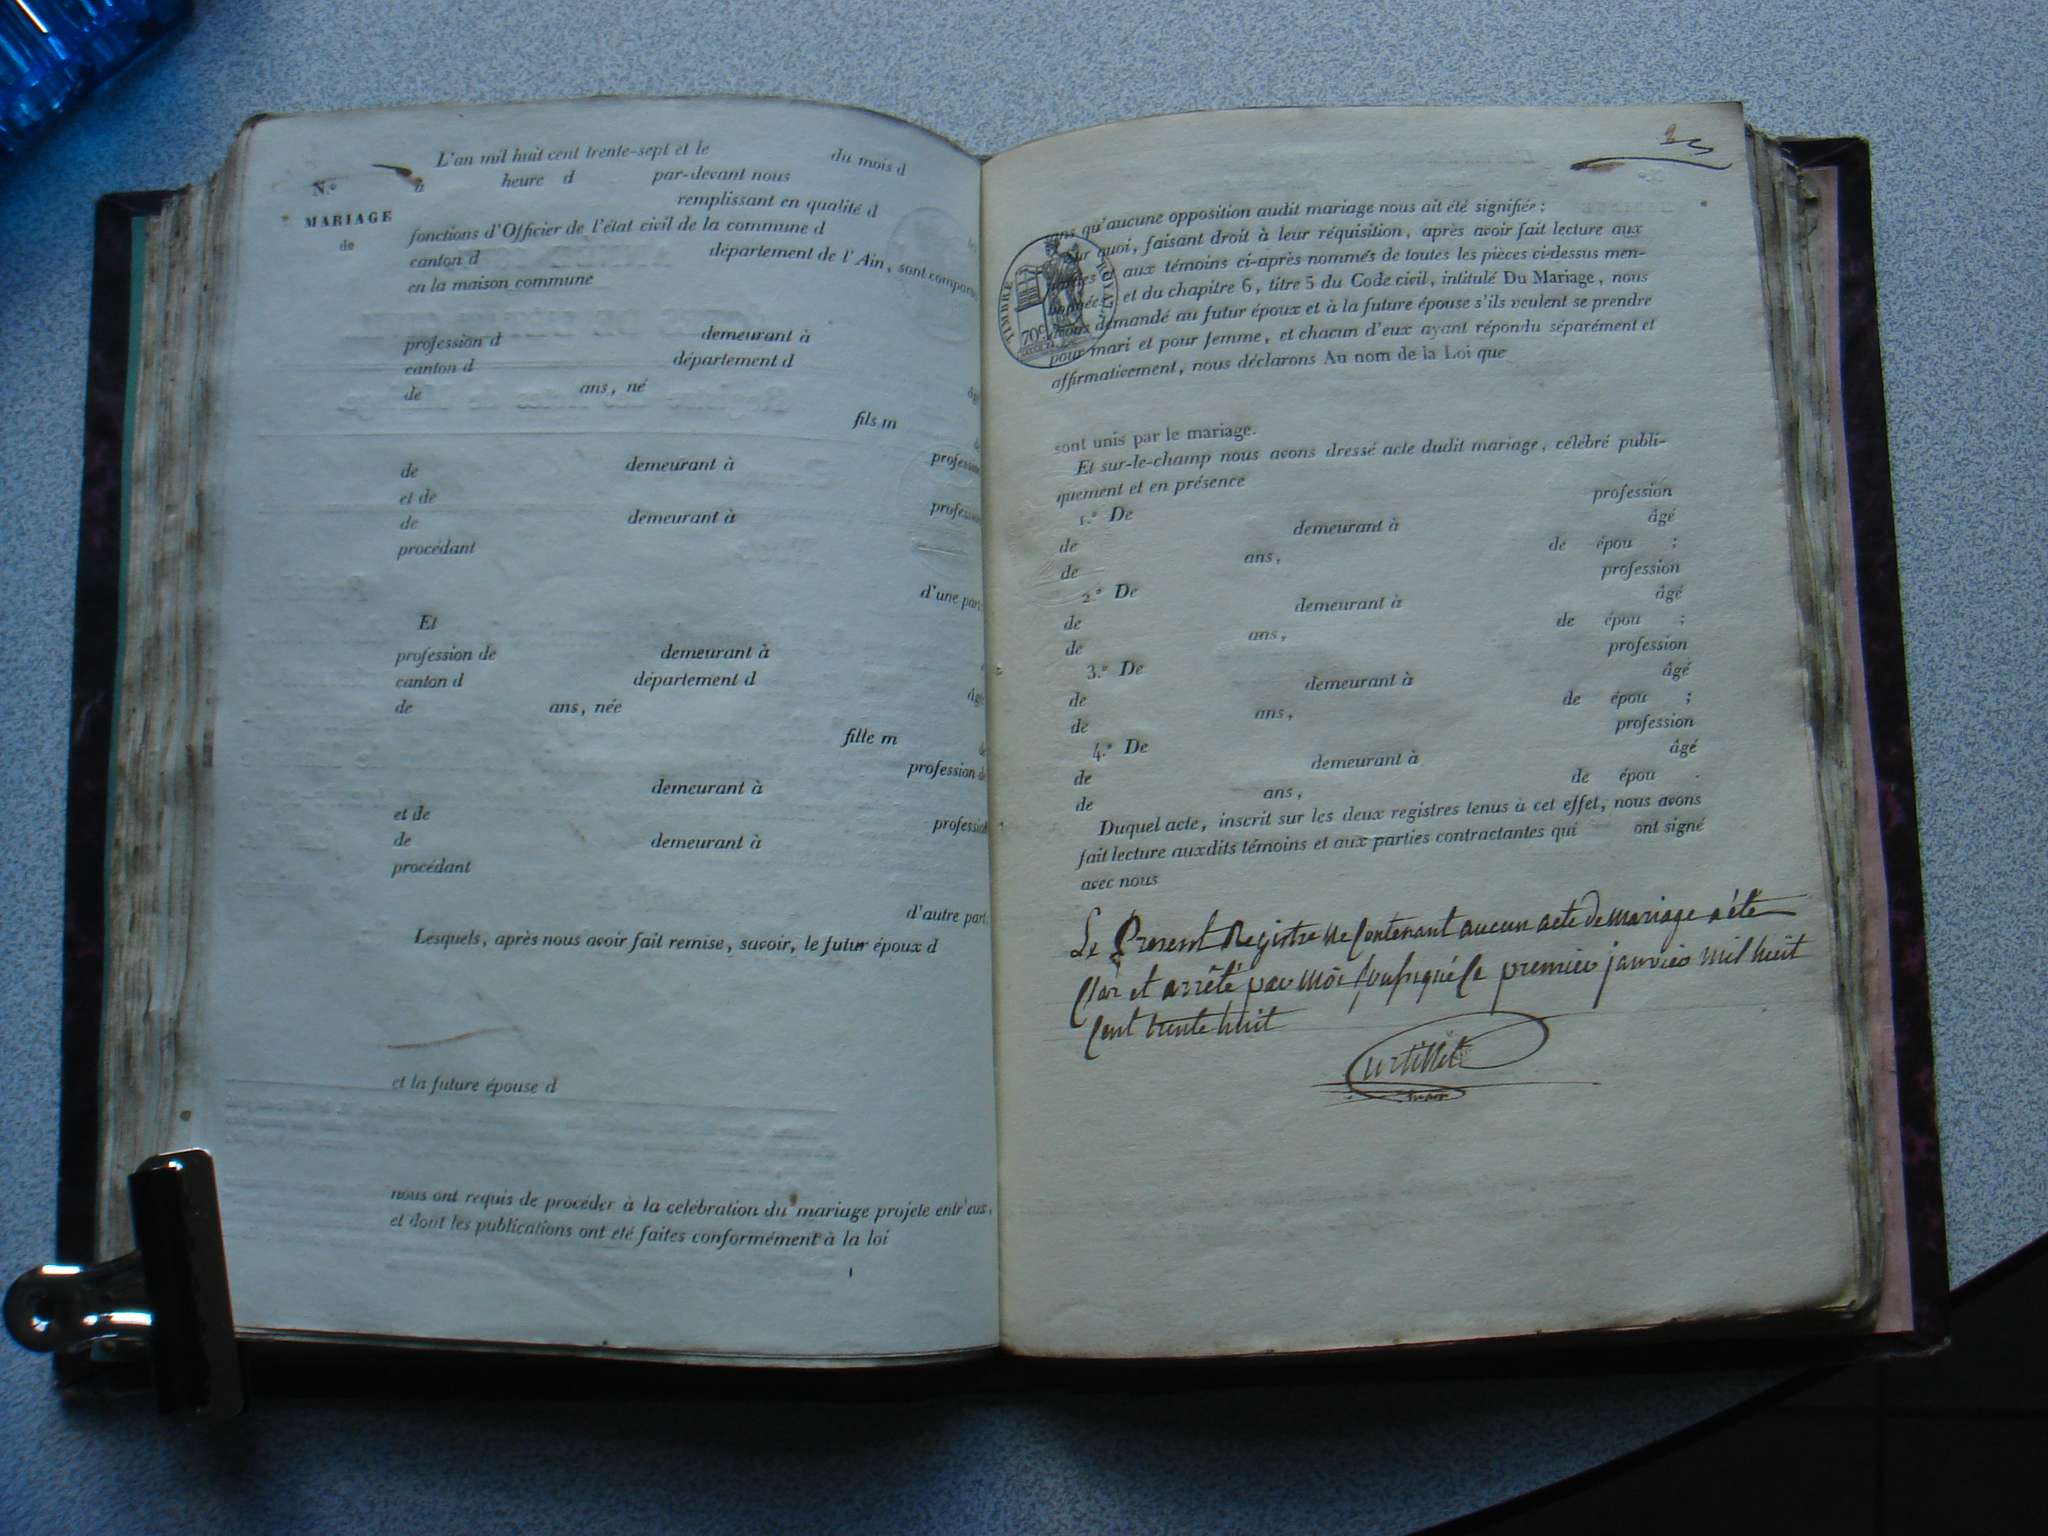 N.º
MARIAGE
de
L'an mil huit cent trente-sept et le du mois d
à heure d par-devant nous
remplissant en qualité d
fonctions d'Officier de l'état civil de la commune d
canton d département de l'Ain, sont comparus
en la maison commune
profession d demeurant à
canton d département d
âgé
de ans, né
fils m
de
profession
de demeurant à
et de
profession
de demeurant à
procédant
d'une part.
Et
profession de demeurant à
canton d département d
âgée
de ans, née
fille m
de
profession d
demeurant à
et de
profession
de demeurant à
procédant
d'autre part.
Lesquels, après nous avoir fait remise, savoir, le futur époux d
et la future épouse d
nous ont requis de procéder à la célébration du mariage projeté entr'eux,
et dont les publications ont été faites conformément à la loi
1
25
sans qu'aucune opposition audit mariage nous ait été signifiée ;
sur quoi, faisant droit à leur réquisition, après avoir fait lecture aux
aux témoins ci-après nommés de toutes les pièces ci-dessus men-
et du chapitre 6, titre 5 du Code civil, intitulé Du Mariage, nous
avons demandé au futur époux et à la future épouse s'ils veulent se prendre
pour mari et pour femme, et chacun d'eux ayant répondu séparément et
affirmativement, nous déclarons Au nom de la Loi que
TIMBRE ROYAL
70c
sont unis par le mariage.
Et sur-le-champ nous avons dressé acte dudit mariage, célébré publi-
quement et en présence
1.º De profession
de demeurant à âgé
de ans, de épou ;
2.º De profession
de demeurant à âgé
de ans, de épou ;
3.º De profession
de demeurant à âgé
de ans, de épou ;
4.º De profession
de demeurant à âgé
de ans, de épou .
Duquel acte, inscrit sur les deux registres tenus à cet effet, nous avons
fait lecture auxdits témoins et aux parties contractantes qui ont signé
avec nous
Le Present Registre ne Contenant aucun acte de mariage a été
Clos et arrêté par moi soussigné Le premier janvier mil huit
Cent trente huit
Curtillet
maire